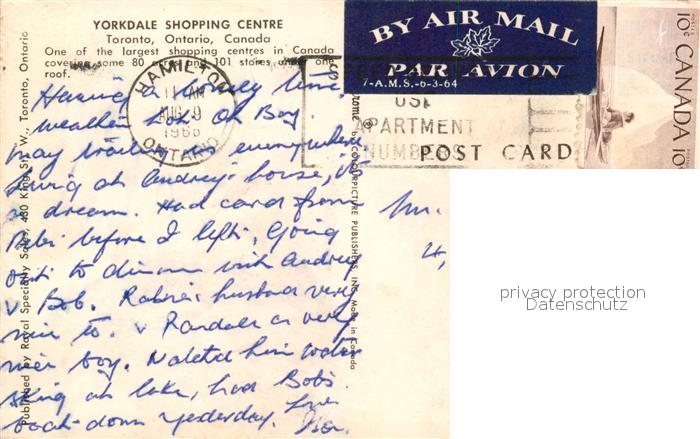 YORKDALE SHOPPING CENTRE
Toronto, Ontario, Canada
One of the largest shopping centres in Canada
covering some 80 acres and 101 stores under one
roof.
BY AIR MAIL
PAR AVION
7-A.M.S.-6-3-64
10¢ CANADA 10¢
HAMILTON
11 AM
AUG 9
1966
ONTARIO
USE
APARTMENT
NUMBERS
POST CARD
Having a lovely time,
weather hot oh Boy.
may travel everywhere
living at Audrey's house, it's
a dream. Had card from
before I left, Going
out to dinner with Audrey
v Bob. husband very
nice to. v Randall a very
nice boy. Watched him water
skiing at lake, had Bob's
boat down yesterday. Love
Mr.
4,
Published by Royal Specialty Sales, 430 King St. W., Toronto, Ontario
by COLOURPICTURE PUBLISHERS, INC. Made in Canada
privacy protection
Datenschutz